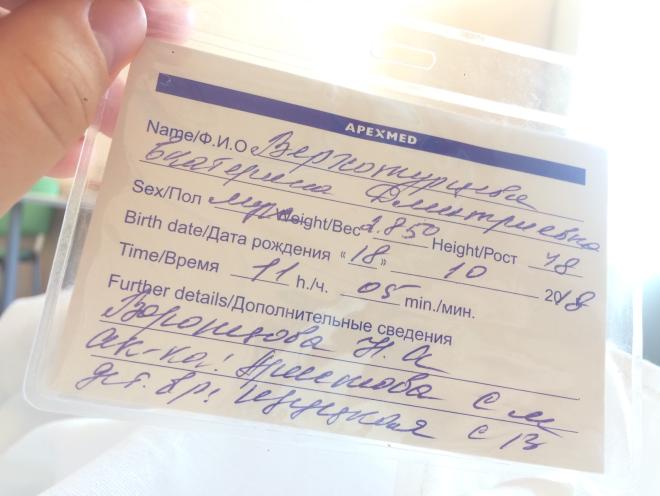 APEXMED
Name/Ф.И.О Верхотурцева
Екатерина Дмитриевна
Sex/Пол муж Weight/Вес 2.850 Height/Рост 48
Birth date/Дата рождения "18" 10 2018
Time/Время 11 h./ч. 05 min./мин.
Further details/Дополнительные сведения
Воронцова Н. А
ак-ка: С М
дет. вр: С В